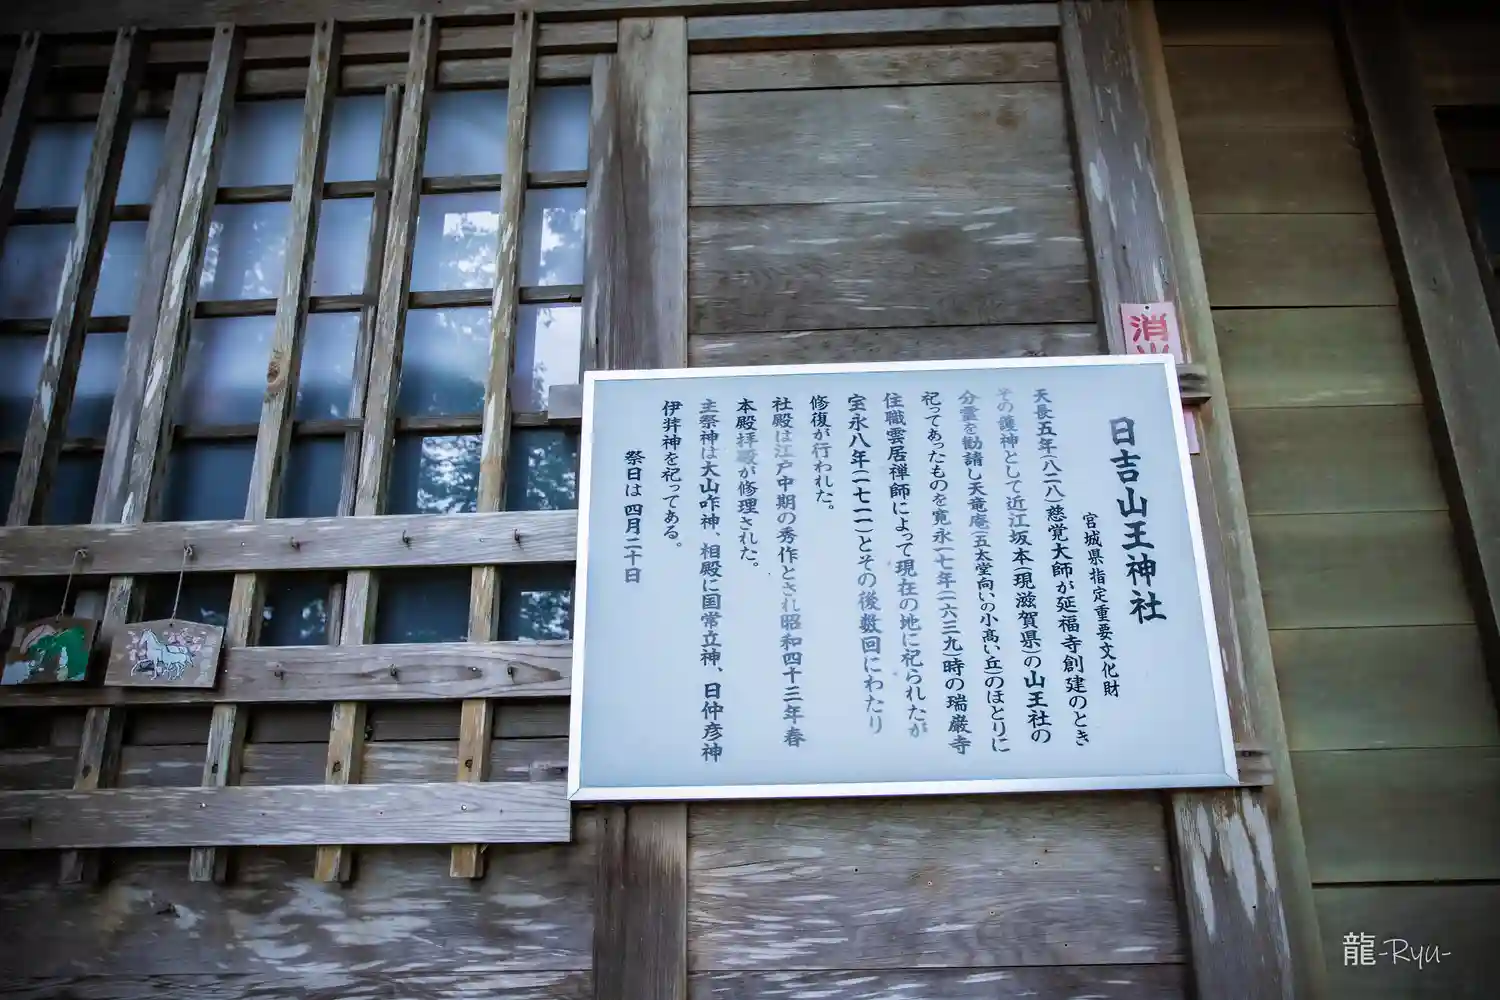 日吉山王神社
宮城県指定重要文化財
天長五年(八二八)慈覚大師が延福寺創建のとき
その護神として近江坂本(現滋賀県)の山王社の
分霊を勧請し天竜庵(五太堂向いの小高い丘)のほとりに
祀ってあったものを寛永一七年(一六三九)時の瑞巌寺
住職雲居禅師によって現在の地に祀られたが
宝永八年(一七一一)とその後数回にわたり
修復が行われた。
社殿は江戸中期の秀作とされ昭和四十三年春
本殿拝殿が修理された。
主祭神は大山咋神、相殿に国常立神、日仲彦神
伊弉神を祀ってある。
祭日は四月二十日
消火
龍-Ryu-